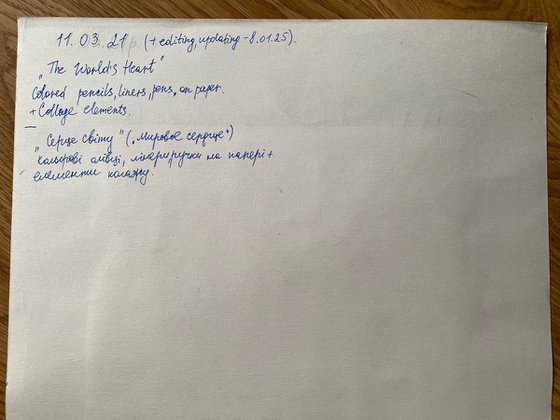 11. 03. 21р. (+ editing, updating - 8.01.25).
„The World's Heart"
Colored pencils, liners, pens, on paper.
+ Collage elements.
—
„Серце світу" („Мировое сердце")
кольорові олівці, лінери, ручки на папері +
елементи колажу.